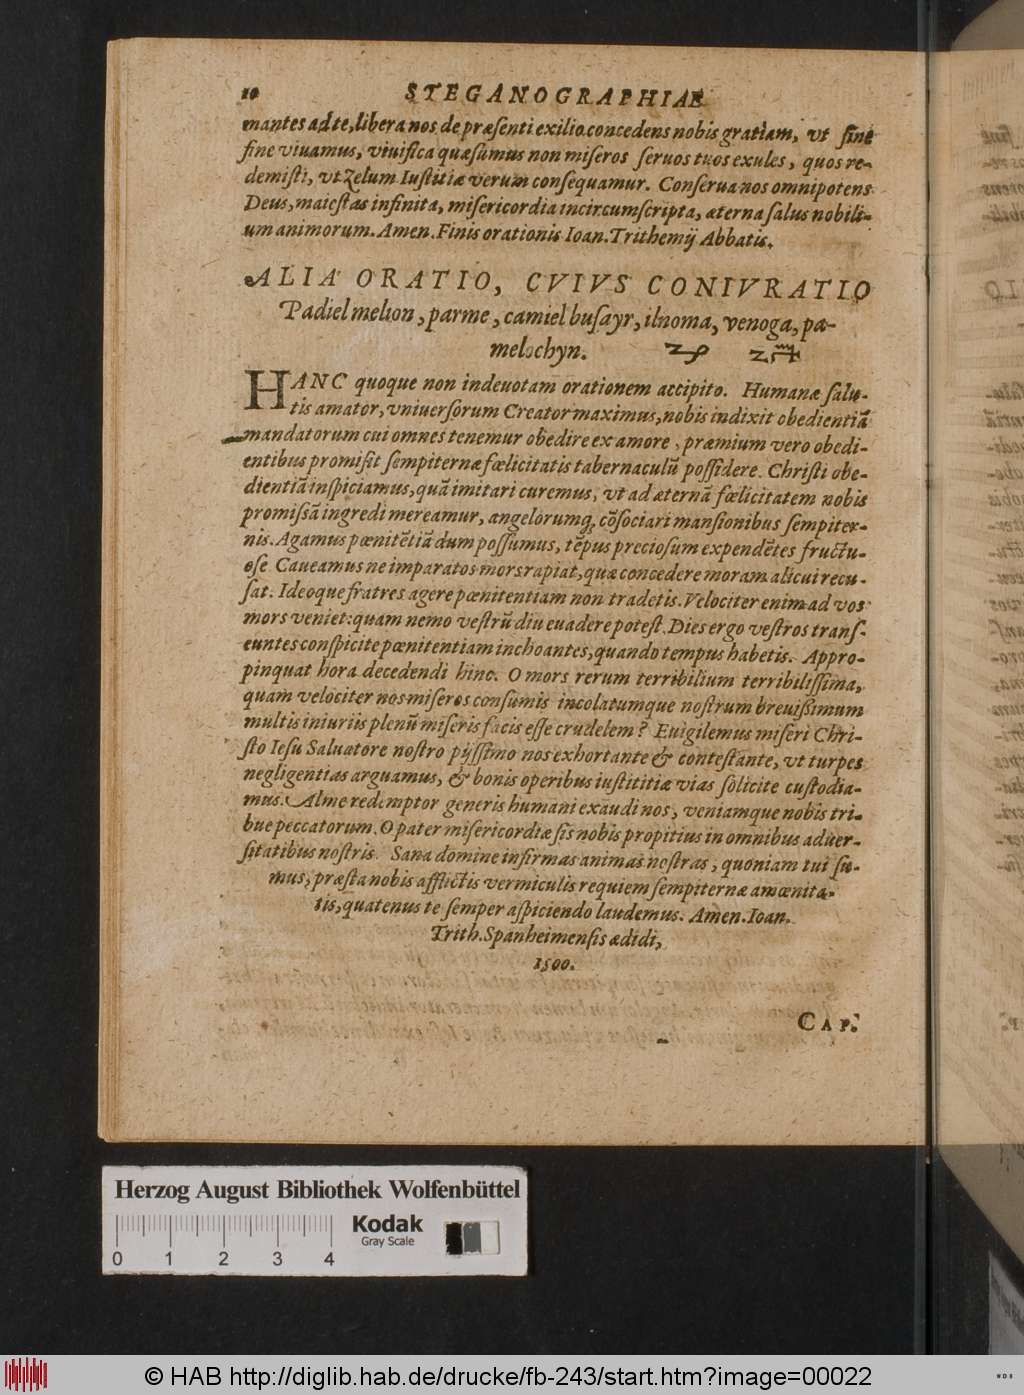 10 STEGANOGRAPHIAE
mantes ad te, libera nos de præſenti exilio. concedens nobis gratiam, vt ſine
fine viuamus, viuifica quæſumus non miſeros ſeruos tuos exules, quos re-
demiſti, vt Zelum Iuſtitiæ verum conſequamur. Conſerua nos omnipotens
Deus, maieſtas infinita, miſericordia incircumſcripta, æterna ſalus nobili-
um animorum. Amen. Finis orationis Ioan. Trithemij Abbatis.
ALIA ORATIO, CVIVS CONIVRATIO
Padiel melion, parme, camiel buſayr, ilnoma, venoga, pa-
melochyn.
HANC quoque non indeuotam orationem accipito. Humanæ ſalu-
tis amator, vniuerſorum Creator maximus, nobis indixit obedientiã
mandatorum cui omnes tenemur obedire ex amore, præmium vero obedi-
entibus promiſit ſempiternæ fœlicitatis tabernaculũ poſſidere. Chriſti obe-
dientiã inſpiciamus, quã imitari curemus, vt ad æternã fœlicitatem nobis
promiſsã ingredi mereamur, angelorumq; cõſociari manſionibus ſempiter-
nis. Agamus pœnitẽtiã dum poſſumus, tẽpus precioſum expendẽtes fructu-
oſe. Caueamus ne imparatos mors rapiat, quæ concedere moram alicui recu-
ſat. Ideoque fratres agere pœnitentiam non tradetis. Velociter enim ad vos
mors veniet: quam nemo veſtrũ diu euadere poteſt. Dies ergo veſtros tranſ-
euntes conſpicite pœnitentiam inchoantes, quando tempus habetis. Appro-
pinquat hora decedendi hinc. O mors rerum terribilium terribiliſſima,
quam velociter nos miſeros conſumis incolatumque noſtrum breuiſſimum
multis iniuriis plenũ miſeris facis eſſe crudelem? Euigilemus miſeri Chri-
ſto Ieſu Saluatore noſtro pijſſimo nos exhortante & conteſtante, vt turpes
negligentias arguamus, & bonis operibus iuſtititiæ vias ſolicite cuſtodia-
mus. Alme redemptor generis humani exaudi nos, veniamque nobis tri-
bue peccatorum. O pater miſericordiæ ſis nobis propitius in omnibus aduer-
ſitatibus noſtris. Sana domine infirmas animas noſtras, quoniam tui ſu-
mus, præſta nobis afflictis vermiculis requiem ſempiternæ amœnita-
tis, quatenus te ſemper aſpiciendo laudemus. Amen. Ioan.
Trith. Spanheimenſis ædidi,
1500.
CAP.
Herzog August Bibliothek Wolfenbüttel
Kodak
Gray Scale
0 1 2 3 4
© HAB http://diglib.hab.de/drucke/fb-243/start.htm?image=00022